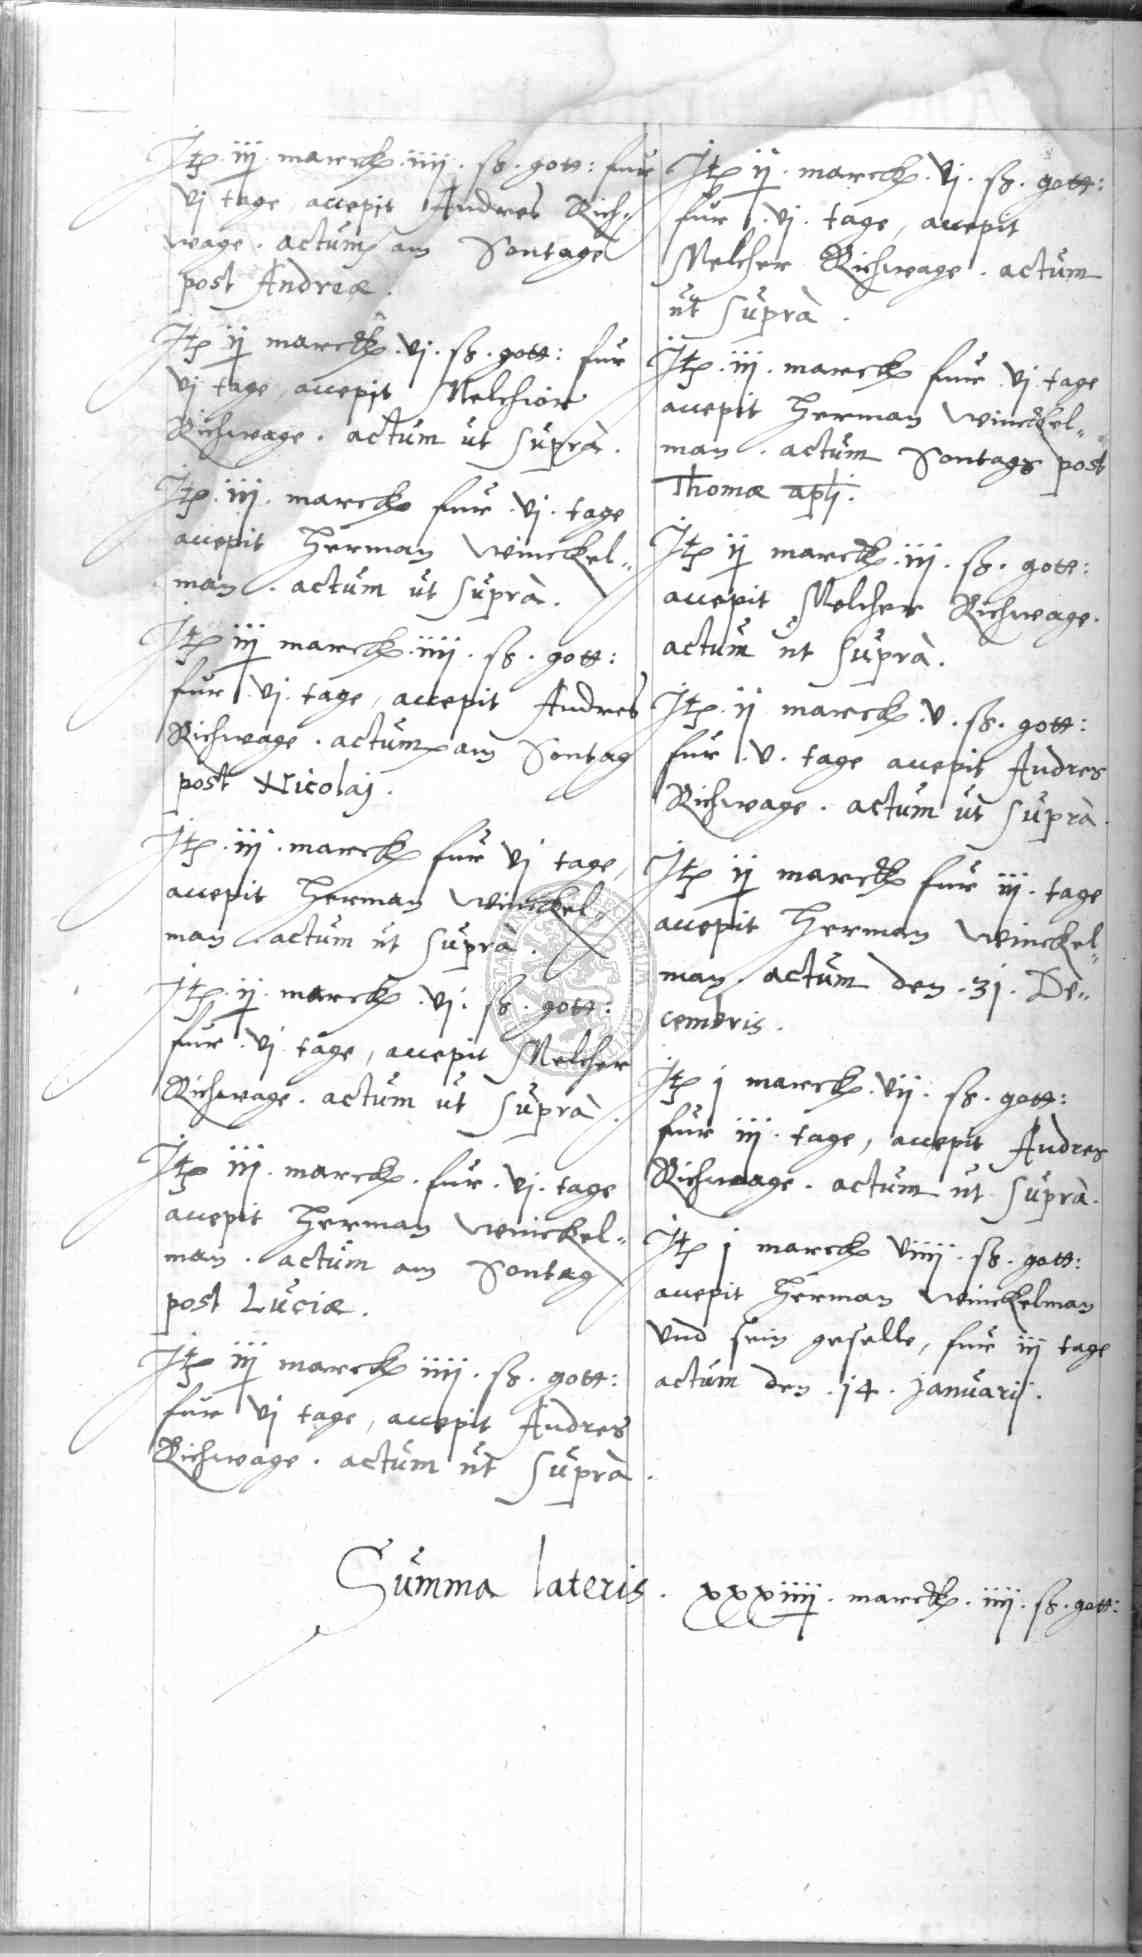 Itꝫ iij marck. iiij. sß. gott: fur
vj tage accepit Andres Rich=
wage. actum am Sontage
post Andreæ.
Itꝫ ij marck. vj. sß. gott: fur
vj tage, accepit Melchior
Richwage. actum ut suprà.
Itꝫ. iij. marck fur. vj. tage
accepit Herman Winckel=
man. actum ut suprà.
Itꝫ iij marck. iiij. sß. gott:
fur. vj. tage, accepit Andres
Richwage. actum am Sontag
post Nicolaj.
Itꝫ. iij. marck fur vj tage,
accepit Herman Winckel=
man actum ut suprà.
Itꝫ. ij. marck. vj. sß. gott:
fur. vj tage, accepit Melcher
Richwage. actum ut suprà.
Itꝫ iij. marck. fur. vj. tage
accepit Herman Winckel=
man. actum am Sontag
post Luciæ.
Itꝫ iij marck iiij. sß. gott:
fur vj tage, accepit Andres
Richwage. actum ut suprà.
Itꝫ ij. marck. vj. sß. gott:
fur. vj. tage, accepit
Melcher Richwage. actum
ut suprà.
Itꝫ. iij. marck fur vj. tage
accepit Herman Winckel=
man. actum Sontags post
Thomæ apli.
Itꝫ ij marck. iij. sß. gott:
accepit Melcher Richwage.
actum ut suprà.
Itꝫ. ij marck. v. sß. gott:
fur. v. tage accepit Andres
Richwage. actum ut suprà.
Itꝫ ij marck fur iij. tage
accepit Herman Winckel=
man. actum den. 31. De=
cembris.
Itꝫ j marck. vij. sß. gott:
fur iij. tage, accepit Andres
Richwage. actum ut suprà.
Itꝫ j marck viiij. sß. gott:
accepit Herman Winckelman
vnd sein geselle, fur iij tage
actum den. 14. Januarij.
Summa lateris. xxxiiij. marck. iiij. sß. gott: